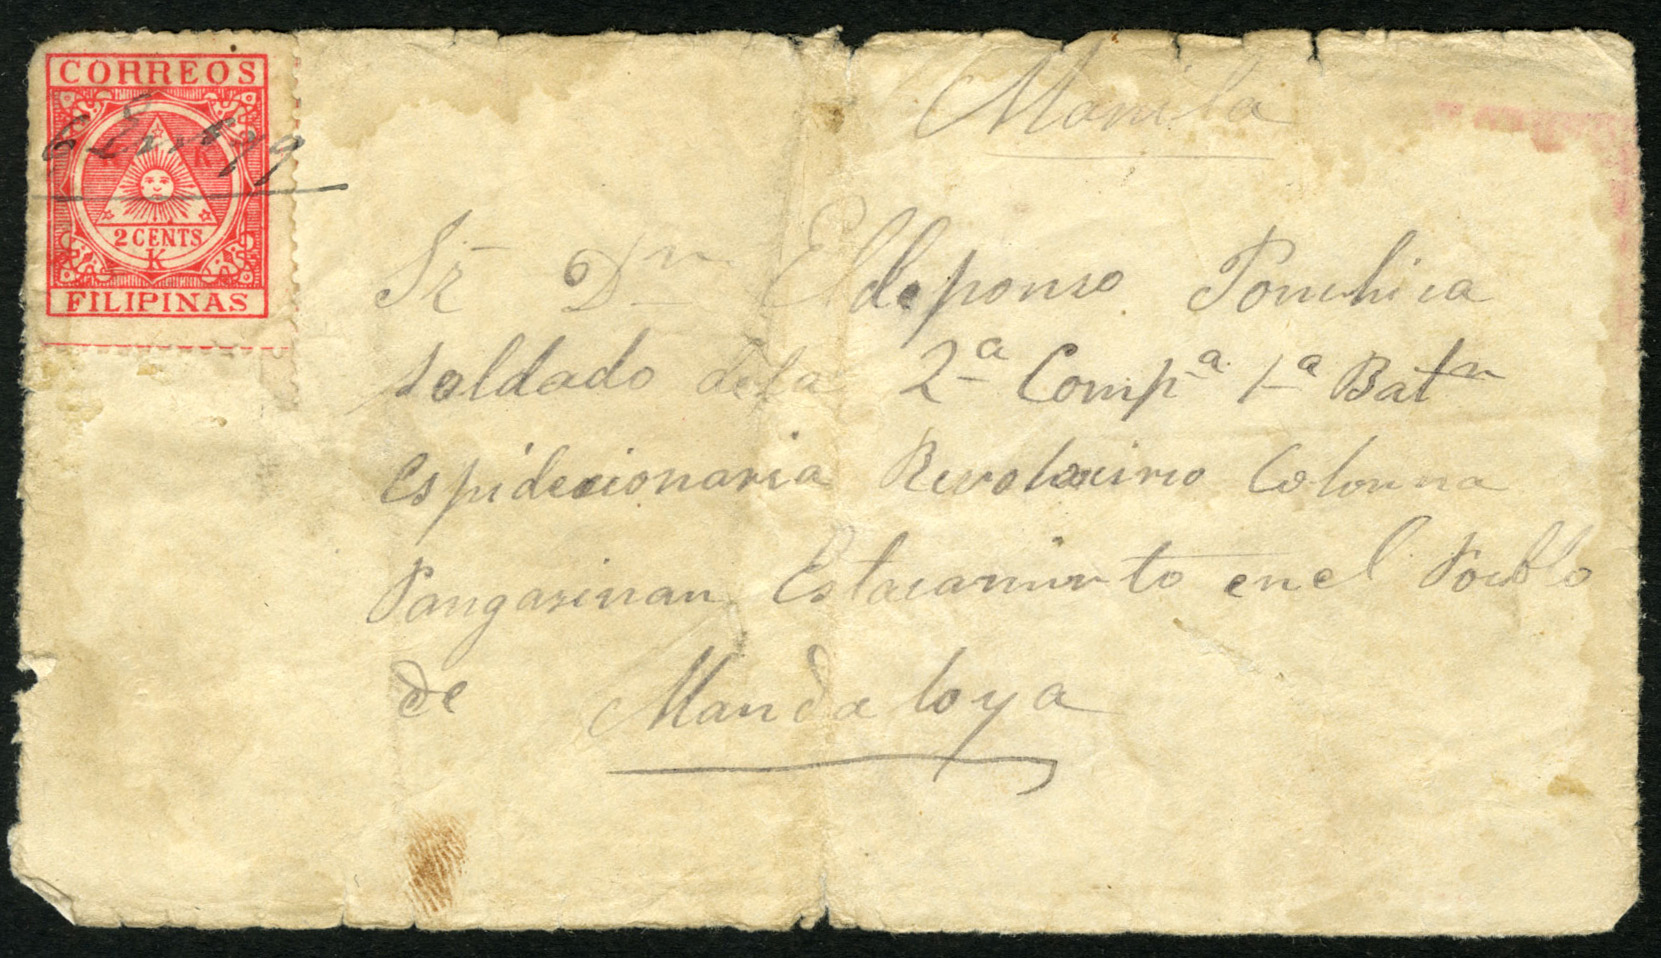 CORREOS
K K
2 CENTS
K
FILIPINAS
Manila
Sr Dn Eldeponso Ponchica
soldado dela 2a Compa 1a Batn
Espidecionaria Colouna
Pangasinan Estacamiento en el Pueblo
de Mandaloya